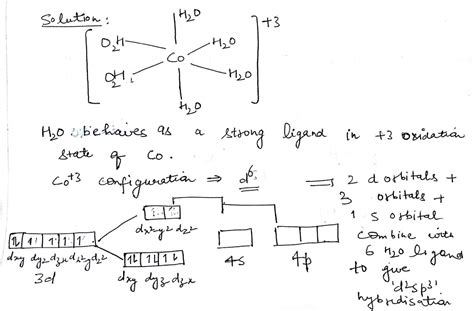 Solution:
H2O
+3
O2H
H2O
Co
O2H
H2O
H2O
H2O behaives as a strong ligand in +3 oxidation
state of Co.
Co+3 configuration ⇒ d6 ⇒ 2 d orbitals +
3 orbitals +
1 s orbital
combine with
6 H2O ligand
to give
'd2sp3'
hybridisation
dx2y2 dz2
1L 1 1 1 1
dxy dyz dzx dx2y2 dz2
3d
1L 1L 1L
dxy dyz dzx
4s
4p